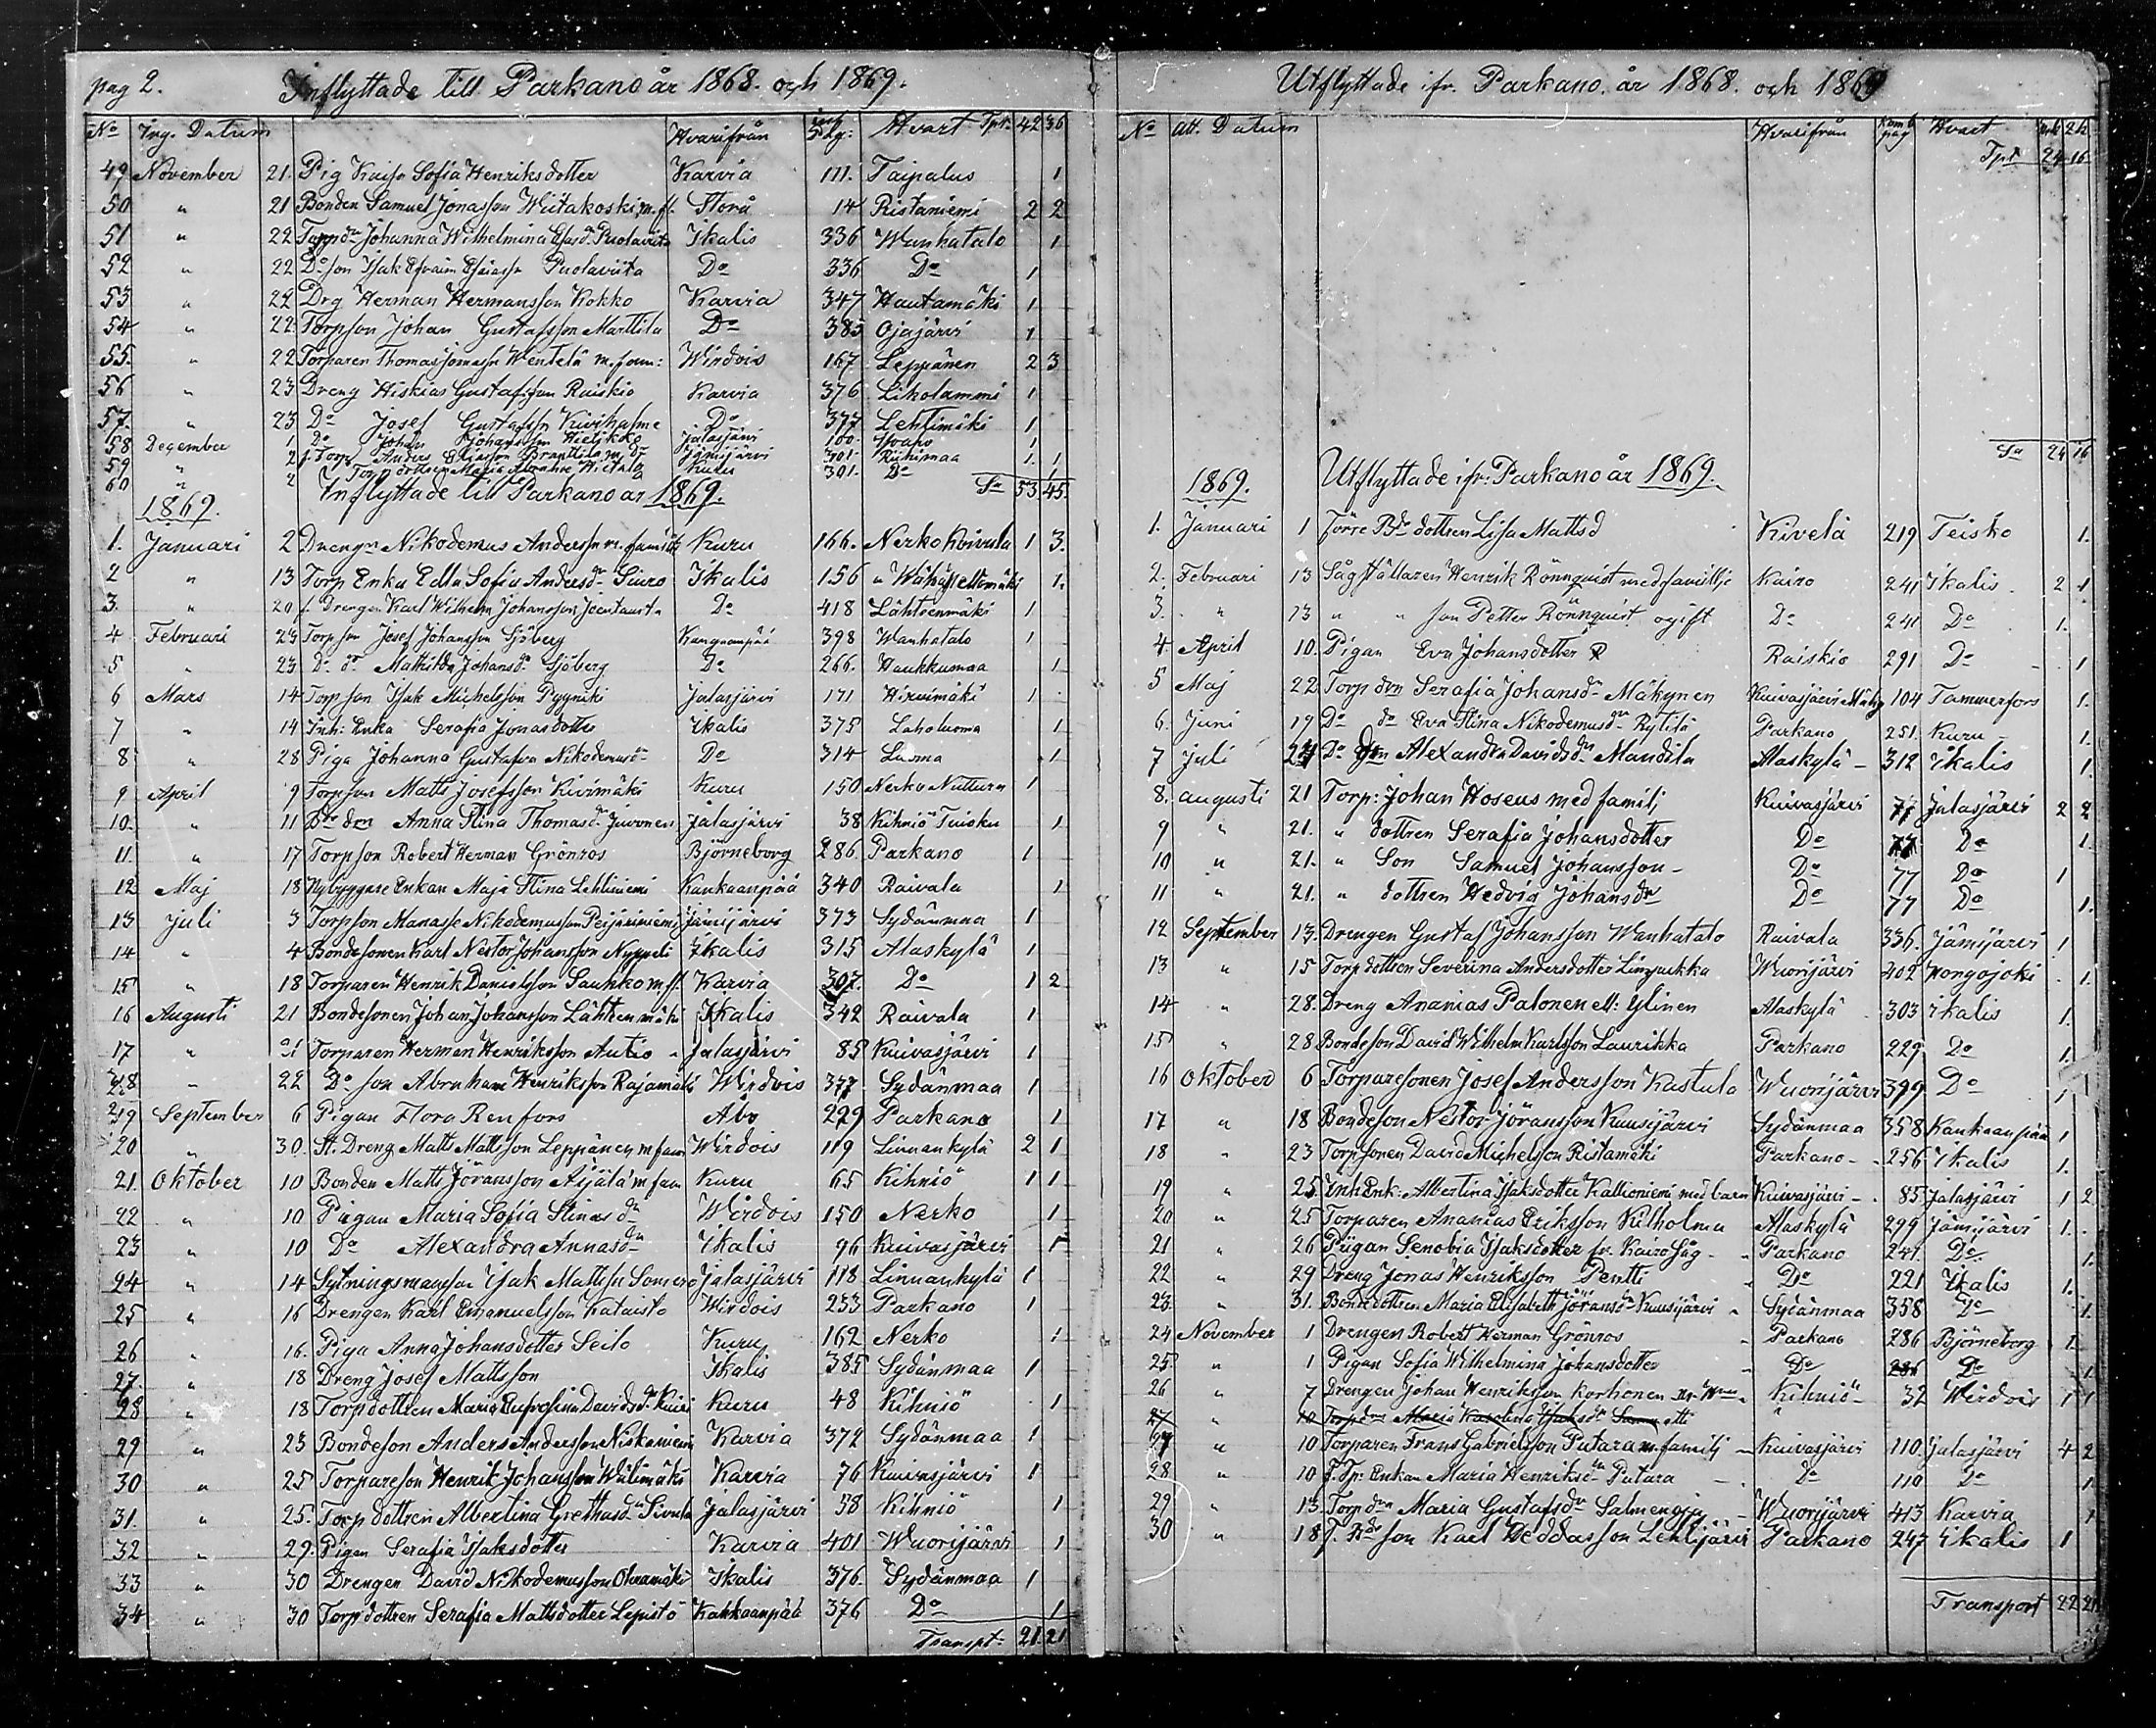 pag 2. Inflyttade till Parkano år 1868. och 1869.
No Ing. Datum Hvarifrån Pag: Hvart Tpt: 42 36
49 November 21. Pig Kaisa Sofia Henriksdotter Karvia 111. Taipalus 1
50 " 21 Bonden Samuel Jonasson Wiitakoski m. fl. Storå 14 Ristaniemi 2 2
51 " 22 Johanna Wilhelmina Puolaviita Ikalis 336 Wanhatalo 1
52 " 22 Do son Isak Efraim Esaiasson Puolaviita Do 336 Do 1
53 " 22 Drg Herman Hermansson Kokko Karvia 347 Hautamäki 1
54 " 22 Torpson Johan Gustafsson Marttila Do 385 Ojajärvi 1
55. " 22 Torparen Thomas Jonasson Wentelä m. fam: Wirdois 167 Leppänen 2 3
56 " 23 Dreng Hiskias Gustafsson Raiskio Karvia 376 Liholammi 1
57. " 23 Do Josef Gustafsson Kivihalme Do 377 Lehtimäki 1
58 December 1 Do Johan Johansson Jalasjärvi 100 1
59 " 2 f. Torp Anders Eliasson Jämijärvi 301. Riihimaa 1. 1
60 " 2 Torp dottren Maria Kuru 301. Do 1
Inflyttade till Parkano år 1869. Sa 53 45.
1869.
1. Januari 2 Drengen Nikodemus Andersson m. familj Kuru 166. Nerko Koivula 1 3.
2 " 13 Torp Enka Edla Sofia Andersdr Siuro Ikalis 156 " 1.
3. " 20 f. Drengen Karl Wilhelm Johansson Joentausta Do 418 Lähteenmäki 1
4 Februari 23 Torpson Josef Johansson Sjöberg Kangaanpää 398 Wanhatalo 1
5 " 23 Do dr Mathilda Johansdr Sjöberg Do 266. Haukkumaa 1
6 Mars 14 Torpson Isak Michelsson Pyyniki Jalasjärvi 171 Hirvimäki 1
7 " 14 Inh: Enka Serafia Jonasdotter Ikalis 375 Laholuoma 1
8 " 28 Piga Johanna Gustafva Nikodemusdr Do 314 Luoma 1
9 April 9 Torpson Matts Josefsson Kivimäki Kuru 150 Nerko Nutturn 1
10. " 11 Do drn Anna Stina Thomasdr Juvonen Jalasjärvi 38 Kihniö Tuisku 1
11. " 17 Torpson Robert Herman Grönros Björneborg 286. Parkano 1
12 Maj 18 Nybyggare Enkan Maja Stina Lehliniemi Kankaanpää 340 Raivala 1
13 Juli 3 Torpson Manasse Nikodemusson Jämijärvi 373 Sydänmaa 1
14 " 4 Bondesonen Karl Nestor Johansson Nyppeli Ikalis 315 Alaskylä 1
15 " 18 Torparen Henrik Danielsson Sauhko m fl. Karvia 307. Do 1 2
16 Augusti 21 Bondesonen Johan Johansson Lähteenmäki Ikalis 342 Raivala 1
17 " 21 Torparen Herman Henriksson Autio Jalasjärvi 85 Kuivasjärvi 1
18 " 22 Do son Abraham Henriksson Rajamäki Wirdois 377 Sydänmaa 1
19 September 6 Pigan Flora Renfors Åbo 229 Parkano 1
20 " 30. St. Dreng Matts Mattsson Leppänen m fam Wirdois 119 Linnankylä 2 1
21. Oktober 10 Bonden Matts Jöransson Äijälä m fam Kuru 65 Kihniö 1 1
22 " 10 Pigan Maria Sofia Stinas dr Wirdois 150 Nerko 1
23 " 10 Do Alexandra Annasdr Ikalis 96 Kuivasjärvi 1
24 " 14 Sytningsmanson Isak Mattsson Somero Jalasjärvi 118 Linnankylä 1
25 " 16 Drengen Karl Emanuelsson Kataisto Wirdois 233 Parkano 1
26 " 16. Piga Anna Johansdotter Seilo Kuru 162 Nerko 1
27. " 18 Dreng Josef Mattsson Ikalis 385 Sydänmaa 1
28 " 18 Torpdottren Maria Eufrosina Davidsdr Kuru 48 Kihniö 1
29 " 23 Bondeson Anders Andersson Niskaniemi Karvia 372 Sydänmaa 1
30 " 25 Torpareson Henrik Johansson Wälimäki Karvia 76 Kuivasjärvi 1
31. " 25. Torp dottren Albertina Grethasdr Sivula Jalasjärvi 58 Kihniö 1
32 " 29. Pigan Serafia Isaksdotter Karvia 401 Wuorijärvi 1
33 " 30 Drengen David Nikodemusson Ohramäki Ikalis 376. Sydänmaa 1
34 " 30 Torpdottren Serafia Mattsdotter Lepistö Kankaanpää 376 Do 1
Transpt: 21. 21
Utflyttade ifr. Parkano. år 1868. och 1869
No Att. Datum Hvarifrån pag Hvart
Tpt 24 16
Sa 24 16
Utflyttade ifr: Parkano år 1869.
1869.
1. Januari 1 Torpe Bdo dottren Lisa Mattsd Kivelä 219 Teisko 1.
2. Februari 13 Sågställaren Henrik Rönnquist med familje Kairo 241 Ikalis 2 1
3. " 13 " " son Petter Rönnquist ogift Do 241 Do 1.
4 April 10. Pigan Eva Johansdotter Raiskio 291 Do 1
5 Maj 22 Torp drn Serafia Johansdr Mäkynen Kuivasjärvi 104 Tammerfors 1.
6. Juni 19 Do do Eva Stina Nikodemusdr Rytilä Parkano 251. Kuru 1.
7 Juli 24 Do drn Alexandra Davidsdr Mandila Alaskylä 312 Ikalis 1.
8. augusti 21 Torp: Johan Hoseus med familj Kuivasjärvi 77 Jalasjärvi 2 2
9 " 21. " dottren Serafia Johansdotter Do 77 Do 1.
10 " 21. " Son Samuel Johansson Do 77 Do 1
11 " 21. " dottren Hedvig Johansdr Do 77 Do 1.
12 September 13. Drengen Gustaf Johansson Wanhatalo Raivala 336. Jämijärvi 1
13 " 15 Torpdottren Severina Andersdotter Linjaukka Wuorijärvi 402 Hongojoki 1.
14 " 28. Dreng Ananias Palonen ell: Ylinen Alaskylä 303 Ikalis 1.
15 " 28 Bondeson David Wilhelm Karlsson Laurikka Parkano 229 Do 1.
16 Oktober 6 Torparesonen Josef Andersson Kastula Wuorijärvi 399 Do 1
17 " 18 Bondeson Nestor Jöransson Kuusijärvi Sydänmaa 358 Kankaanpää 1
18 " 23 Torpsonen David Michelsson Ristamäki Parkano 256 Ikalis 1.
19 " 25 Inh Enk: Albertina Isaksdotter Kallioniemi med barn Kuivasjärvi 85 Jalasjärvi 1 2
20 " 25 Torparen Ananias Eriksson Kilholma Alaskylä 299 Jämijärvi 1.
21 " 26 Pigan Senobia Isaksdotter fr. Kairo Såg Parkano 241. Do 1.
22 " 29 Dreng Jonas Henriksson Pentti Do 221 Ikalis 1.
23. " 31. Bondedottren Maria Elisabeth Jöransdr Kuusijärvi Sydänmaa 358 Do 1.
24 November 1 Drengen Robert Herman Grönros Parkano 286 Björneborg 1
25 " 1 Pigan Sofia Wilhelmina Johansdotter Do 286 Do 1.
26 " 7 Drengen Johan Henriksson Korhonen Kihniö 32 Wirdois 1 1
27 " 10 Torpdrn Maria Karolina Isaksdr
27 " 10 Torparen Frans Gabrielsson Putara m familj Kuivasjärvi 110. Jalasjärvi 4 2
28 " 10 f. Tp: Enkan Maria Henriksdr Putara Do 110 Do 1.
29 " 13. Torp drn Maria Gustafsdr Salmenoja Wuorijärvi 413 Karvia 1
30 " 18 son Karl Heddasson Lehlijärvi Parkano 247 Ikalis 1
Transport 22 21